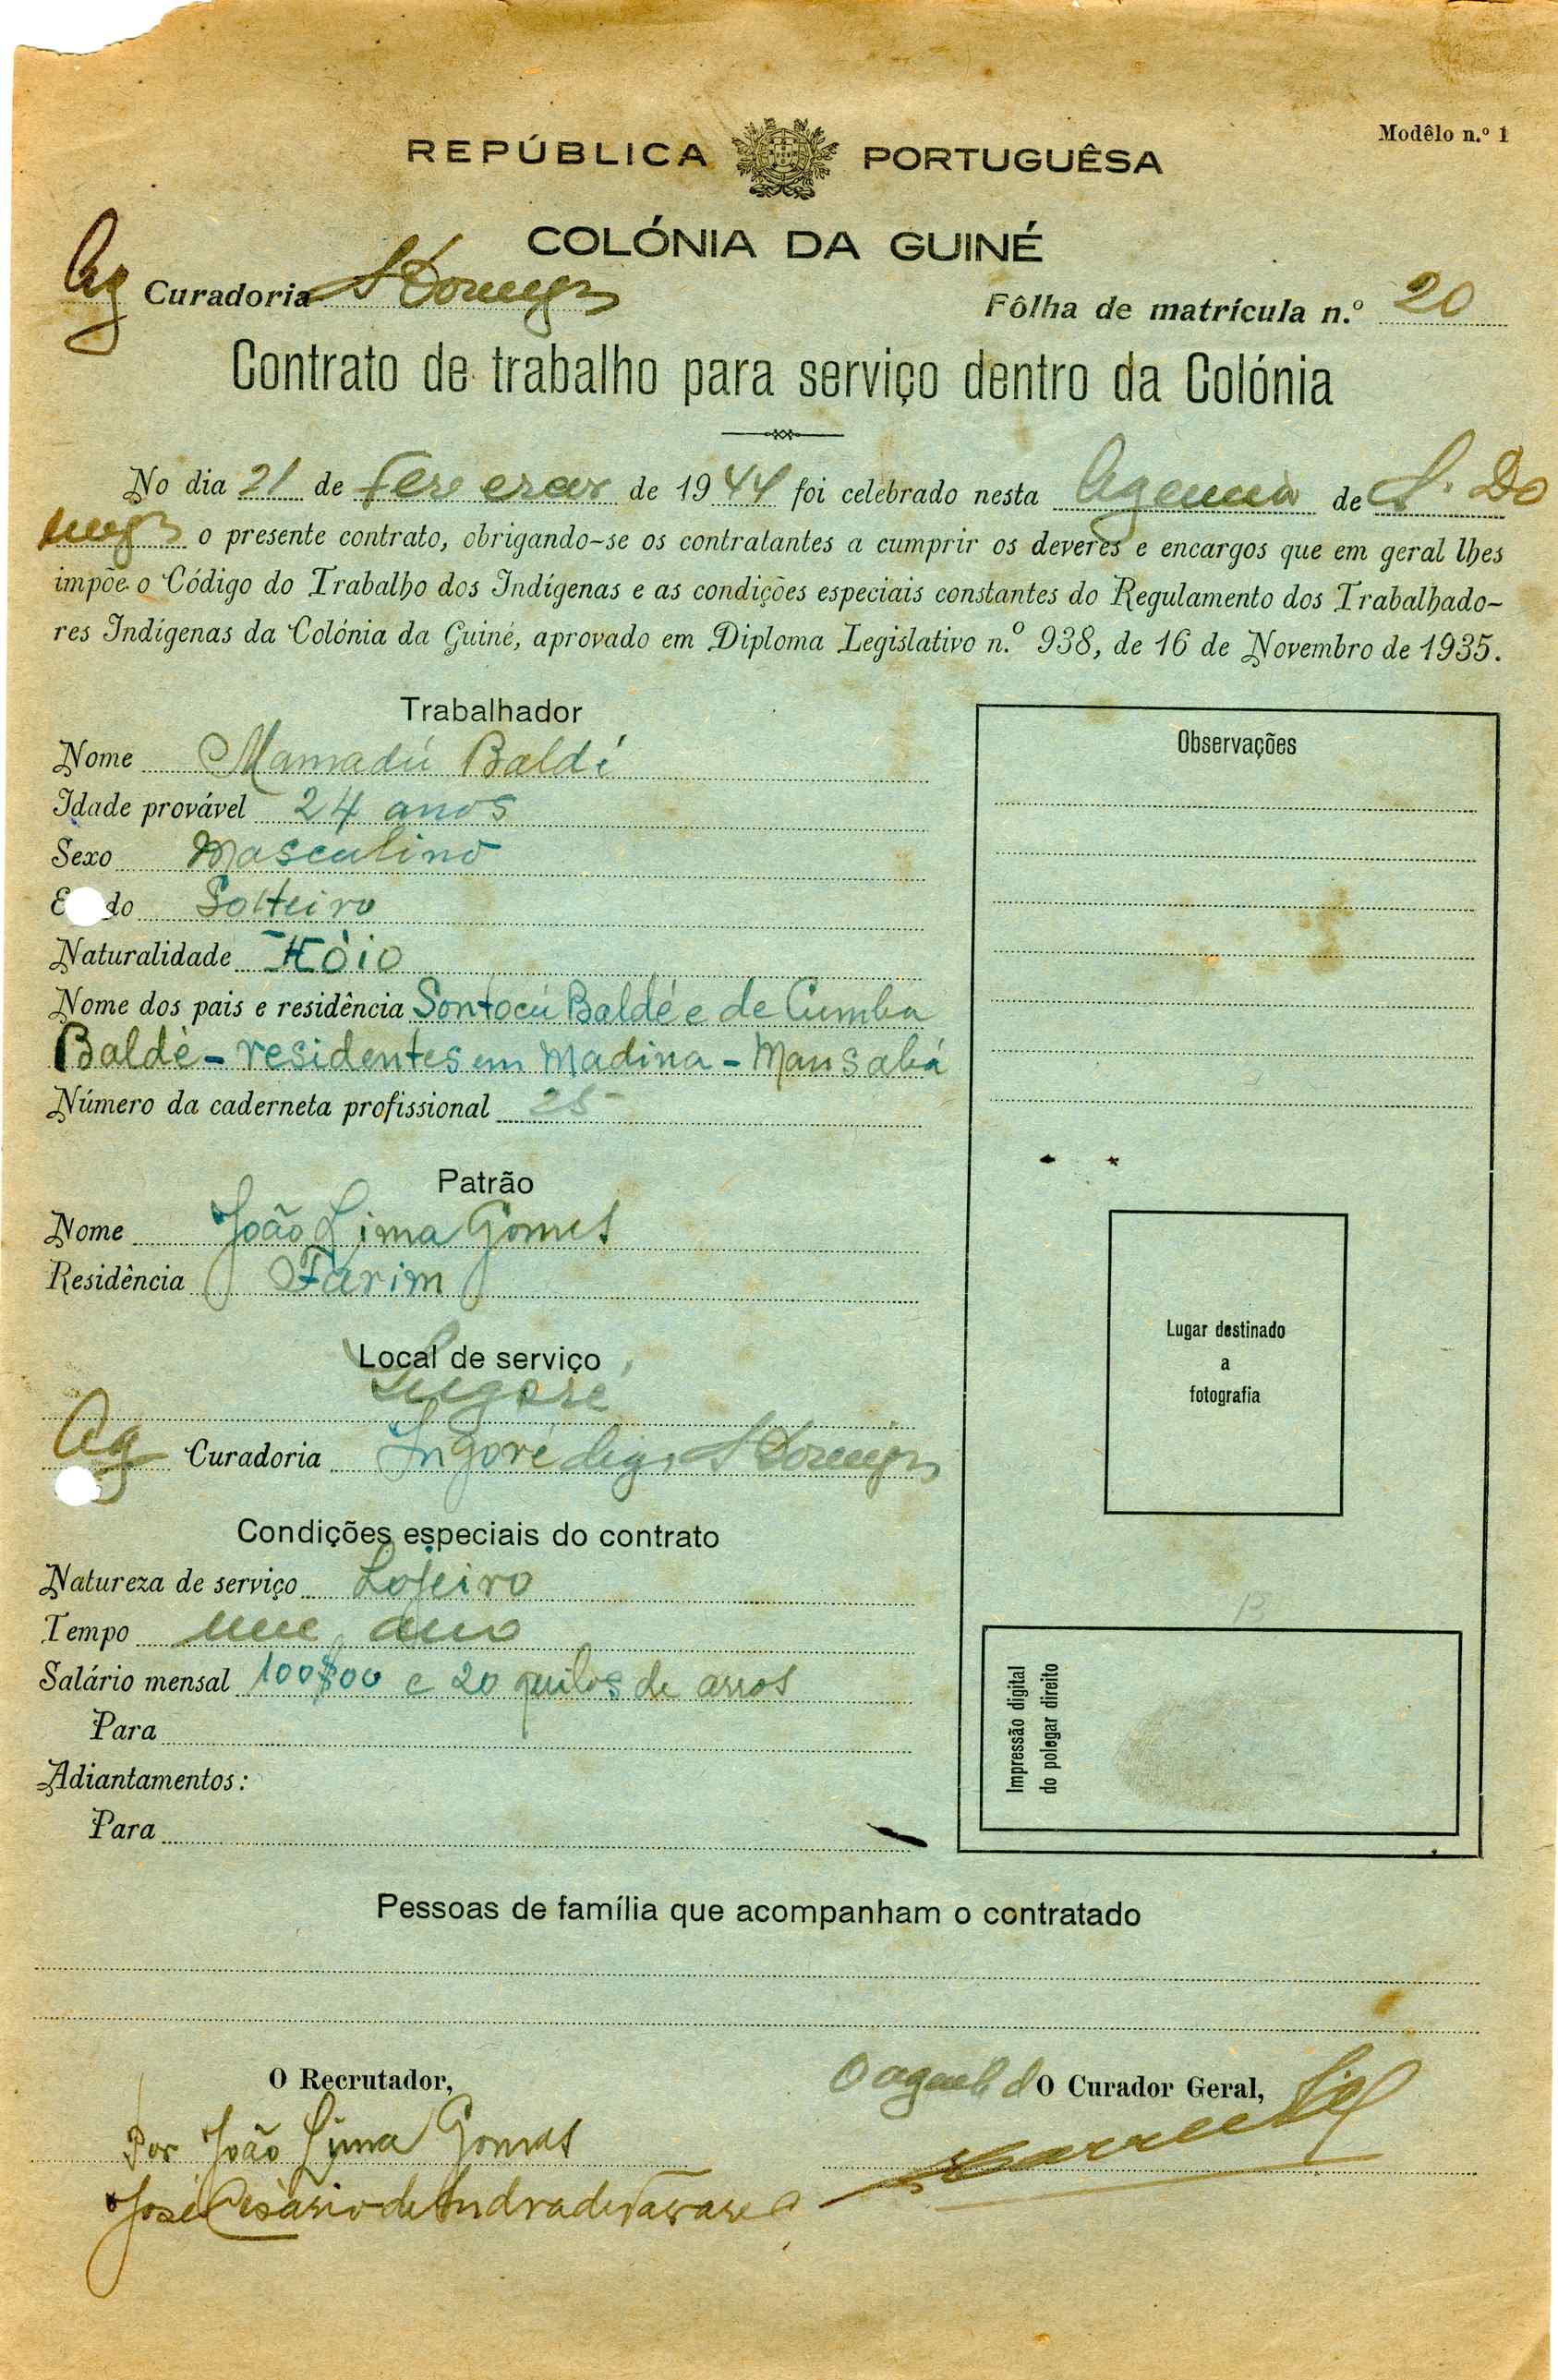 Modêlo n.º 1
REPÚBLICA PORTUGUÊSA
COLÓNIA DA GUINÉ
Ag Curadoria S Domingos Fôlha de matrícula n.º 20
Contrato de trabalho para serviço dentro da Colónia
No dia 21 de Fevereiro de 1944 foi celebrado nesta Agencia de S. Do
mingos o presente contrato, obrigando-se os contratantes a cumprir os deveres e encargos que em geral lhes
impõe o Código do Trabalho dos Indígenas e as condições especiais constantes do Regulamento dos Trabalhado-
res Indígenas da Colónia da Guiné, aprovado em Diploma Legislativo n.º 938, de 16 de Novembro de 1935.
Trabalhador
Nome Mamadú Baldé
Idade provável 24 anos
Sexo Masculino
E do Solteiro
Naturalidade
Nome dos pais e residência Sontocú Baldé e de Cumba
Baldé - residentes em Madina - Mansabá
Número da caderneta profissional 25
Patrão
Nome João Lima Gomes
Residência Farim
Local de serviço
Ingoré
Ag Curadoria Ingoré Ag. S Domingos
Condições especiais do contrato
Natureza de serviço Lojeiro
Tempo um ano
Salário mensal 100$00 e 20 quilos de arros
Para
Adiantamentos:
Para
Observações
Lugar destinado
a
fotografia
Impressão digital
do polegar direito
Pessoas de família que acompanham o contratado
O Recrutador,
Por João Lima Gomes
José Cesário de Andrade Tavares
O agente do O Curador Geral,